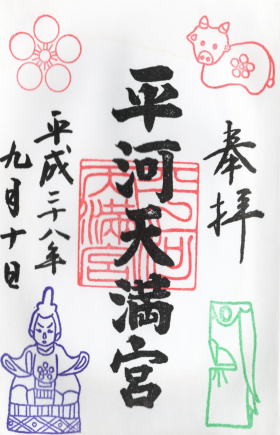 奉拝
平河天満宮
平河天満宮
平成二十八年
九月十日